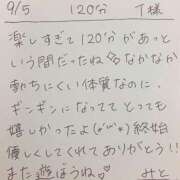 9/5 120分 T様
楽しすぎて120分があっと
いう間だったね なかなか
勃ちにくい体質なのに、
ギンギンになっててとっても
嬉しかったよ(〃'▽'〃) 終始
優しくしてくれてありがとう!
また遊ぼうね♡ みと